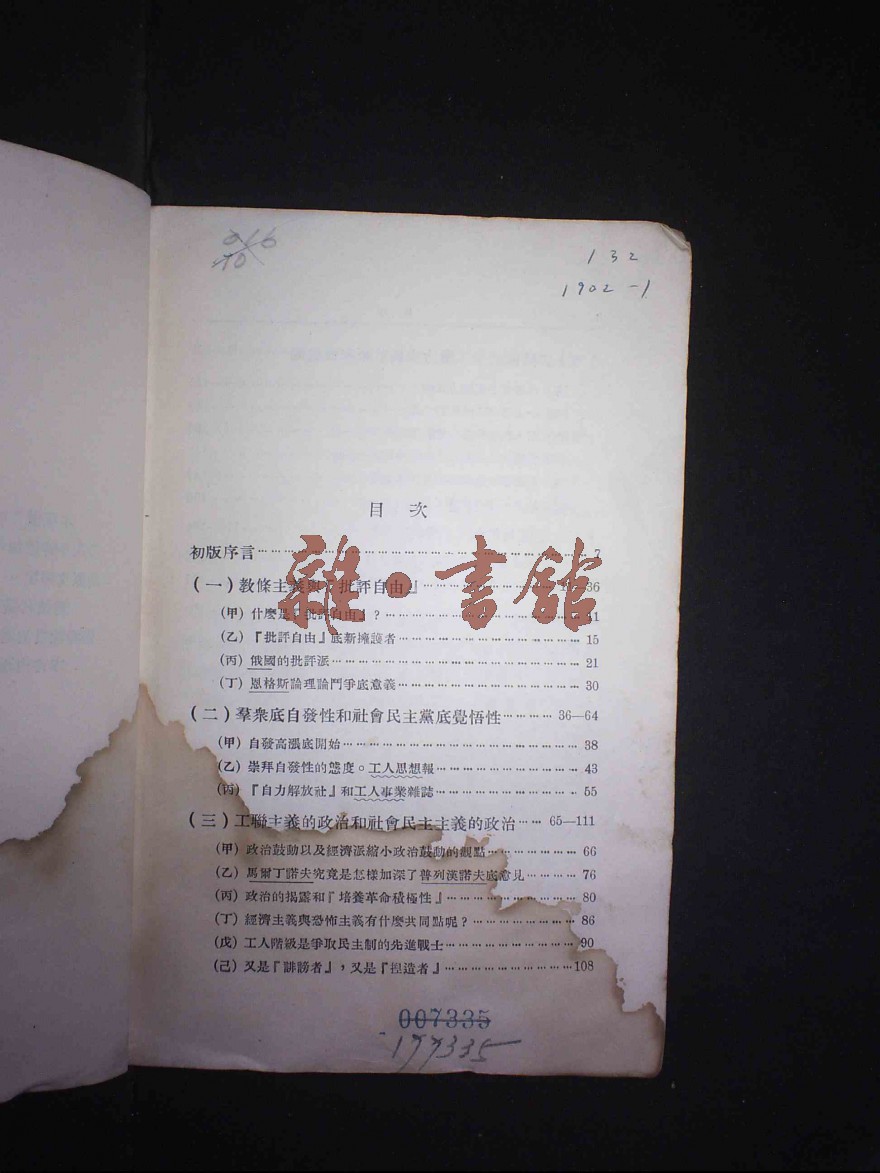 816
10
132
1902-1
目次
初版序言……7
(一)教條主義與『批評自由』……36
(甲)什麼是『批評自由』?……11
(乙)『批評自由』底新擁護者……15
(丙)俄國的批評派……21
(丁)恩格斯論理論鬥爭底意義……30
(二)羣衆底自發性和社會民主黨底覺悟性……36—64
(甲)自發高漲底開始……38
(乙)崇拜自發性的態度。工人思想報……43
(丙)『自力解放社』和工人事業雜誌……55
(三)工聯主義的政治和社會民主主義的政治……65—111
(甲)政治鼓動以及經濟派縮小政治鼓動的觀點……66
(乙)馬爾丁諾夫究竟是怎樣加深了普列漢諾夫底意見……76
(丙)政治的揭露和『培養革命積極性』……80
(丁)經濟主義與恐怖主義有什麼共同點呢?……86
(戊)工人階級是爭取民主制的先進戰士……90
(己)又是『誹謗者』,又是『捏造者』……108
007335
177335
雜·書館